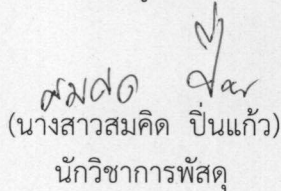 สมคิด ปิ่น
(นางสาวสมคิด ปิ่นแก้ว)
นักวิชาการพัสดุ